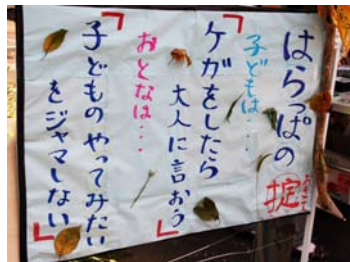 はらっぱの掟
おきて
子どもは・・・
「ケガをしたら
大人に言おう」
おとなは・・・
「子どものやってみたい
をジャマしない」